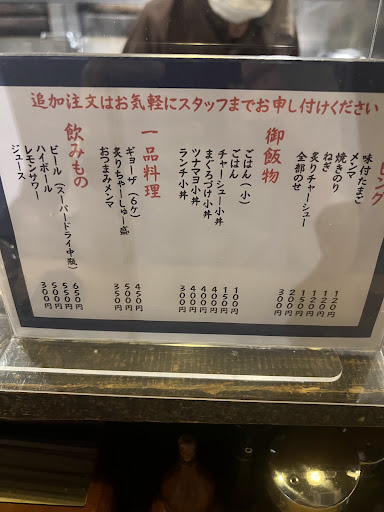 追加注文はお気軽にスタッフまでお申し付けください
ング
味付たまご 120円
メンマ 120円
焼きのり 120円
ねぎ 150円
炙りチャーシュー 200円
全部のせ 300円
御飯物
ごはん（小） 100円
ごはん 150円
チャーシュー小丼 400円
まぐろづけ小丼 400円
ツナマヨ小丼 400円
ランチ小丼 300円
一品料理
ギョーザ（6ケ） 450円
炙りちゃーしゅー盛 500円
おつまみメンマ 350円
飲みもの
ビール（スーパードライ中瓶） 650円
ハイボール 550円
レモンサワー 500円
ジュース 300円